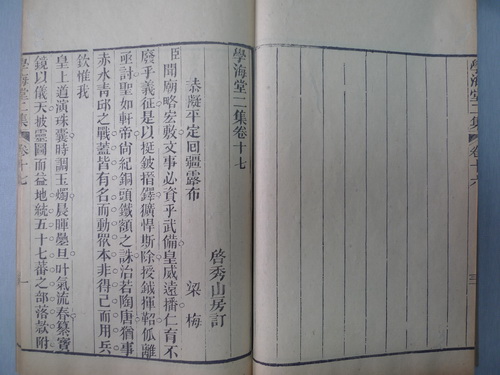 學海堂二集 卷十六
三
學海堂二集卷十七
啓秀山房訂
恭擬平定回疆露布
梁梅
臣聞廟略宏敷文事必資乎武備皇威遠播仁育不
廢乎義征是以挺鈹搢鐸獷悍斯除授鉞揮鞀狐離
亟討聖如軒帝尚紀銅頭鐵額之誅治若陶唐猶事
赤水靑邱之戰蓋皆有名而動眾本非得已而用兵
欽惟我
皇上道演珠囊時調玉燭晨暉曡旦叶氣流春纂寶
鏡以儀天披靈圖而益地統五十七蕃之部落款附
學海堂二集 卷十七
一